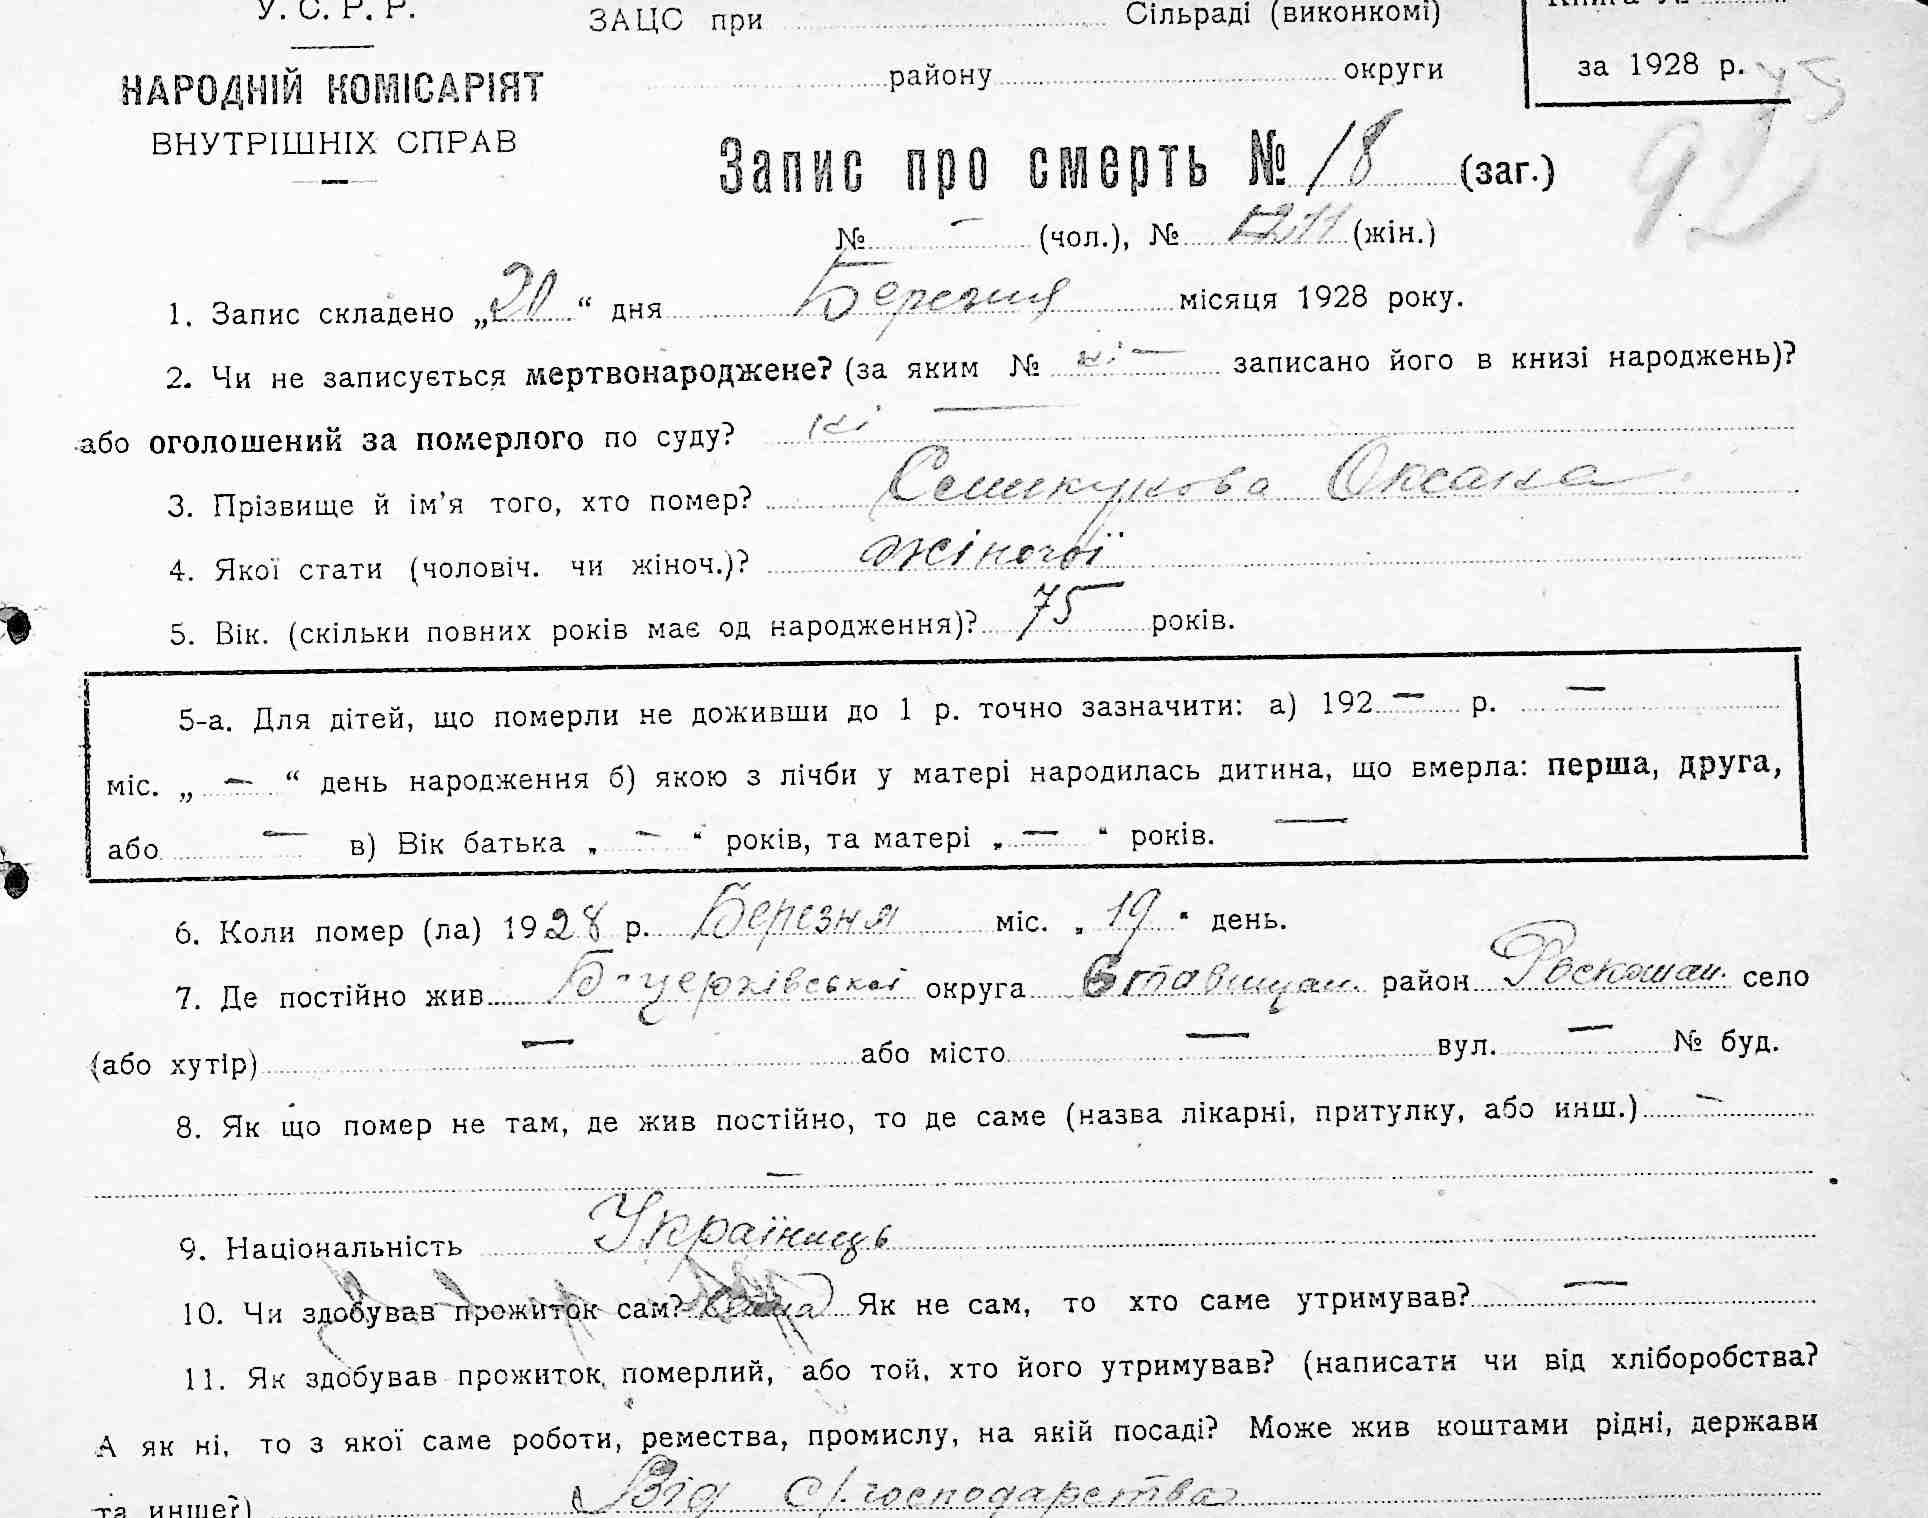 У. С. Р. Р.
НАРОДНІЙ КОМІСАРІЯТ
ВНУТРІШНІХ СПРАВ
ЗАЦС при Сільраді (виконкомі)
району округи
Книга №
за 1928 р.
92
Запис про смерть № 18 (заг.)
№ – (чол.), № 11 (жін.)
1. Запис складено „20“ дня Березня місяця 1928 року.
2. Чи не записується мертвонароджене? (за яким № ні – записано його в книзі народжень)?
або оголошений за померлого по суду? ні –
3. Прізвище й ім’я того, хто помер? Семикунова Оксана
4. Якої стати (чоловіч. чи жіноч.)? жіночої
5. Вік. (скільки повних років має од народження)? 75 років.
5-а. Для дітей, що померли не доживши до 1 р. точно зазначити: а) 192 – р. –
міс. „ – “ день народження б) якою з лічби у матері народилась дитина, що вмерла: перша, друга,
або – в) Вік батька „ – “ років, та матері „ – “ років. –
6. Коли помер (ла) 1928 р. Березня міс. „19“ день.
7. Де постійно жив Б-церківської округа Ставищан. район Роскошан. село
(або хутір) – або місто – вул. – № буд.
8. Як що помер не там, де жив постійно, то де саме (назва лікарні, притулку, або инш.) –
–
9. Національність Українць
10. Чи здобував прожиток сам? сама Як не сам, то хто саме утримував? –
11. Як здобував прожиток померлий, або той, хто його утримував? (написати чи від хліборобства?
А як ні, то з якої саме роботи, ремества, промислу, на якій посаді? Може жив коштами рідні, держави
та инше?) Від с/господарства